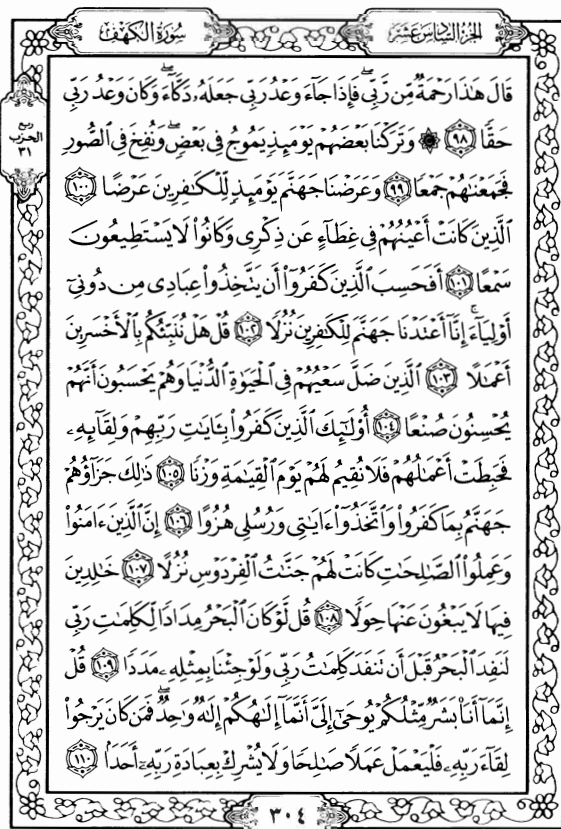 الجزء السادس عشر
سورة الكهف
ربع
الحزب
٣١
قَالَ هَٰذَا رَحْمَةٌ مِّن رَّبِّي ۖ فَإِذَا جَآءَ وَعْدُ رَبِّي جَعَلَهُۥ دَكَّآءَ ۖ وَكَانَ وَعْدُ رَبِّي
حَقًّا ٩٨ ۞ وَتَرَكْنَا بَعْضَهُمْ يَوْمَئِذٍ يَمُوجُ فِي بَعْضٍ ۖ وَنُفِخَ فِي ٱلصُّورِ
فَجَمَعْنَٰهُمْ جَمْعًا ٩٩ وَعَرَضْنَا جَهَنَّمَ يَوْمَئِذٍ لِّلْكَٰفِرِينَ عَرْضًا ١٠٠
ٱلَّذِينَ كَانَتْ أَعْيُنُهُمْ فِي غِطَآءٍ عَن ذِكْرِي وَكَانُوا۟ لَا يَسْتَطِيعُونَ
سَمْعًا ١٠١ أَفَحَسِبَ ٱلَّذِينَ كَفَرُوٓا۟ أَن يَتَّخِذُوا۟ عِبَادِي مِن دُونِيٓ
أَوْلِيَآءَ ۚ إِنَّآ أَعْتَدْنَا جَهَنَّمَ لِلْكَٰفِرِينَ نُزُلًا ١٠٢ قُلْ هَلْ نُنَبِّئُكُم بِٱلْأَخْسَرِينَ
أَعْمَٰلًا ١٠٣ ٱلَّذِينَ ضَلَّ سَعْيُهُمْ فِي ٱلْحَيَوٰةِ ٱلدُّنْيَا وَهُمْ يَحْسَبُونَ أَنَّهُمْ
يُحْسِنُونَ صُنْعًا ١٠٤ أُو۟لَٰٓئِكَ ٱلَّذِينَ كَفَرُوا۟ بِـَٔايَٰتِ رَبِّهِمْ وَلِقَآئِهِۦ
فَحَبِطَتْ أَعْمَٰلُهُمْ فَلَا نُقِيمُ لَهُمْ يَوْمَ ٱلْقِيَٰمَةِ وَزْنًا ١٠٥ ذَٰلِكَ جَزَآؤُهُمْ
جَهَنَّمُ بِمَا كَفَرُوا۟ وَٱتَّخَذُوٓا۟ ءَايَٰتِي وَرُسُلِي هُزُوًا ١٠٦ إِنَّ ٱلَّذِينَ ءَامَنُوا۟
وَعَمِلُوا۟ ٱلصَّٰلِحَٰتِ كَانَتْ لَهُمْ جَنَّٰتُ ٱلْفِرْدَوْسِ نُزُلًا ١٠٧ خَٰلِدِينَ
فِيهَا لَا يَبْغُونَ عَنْهَا حِوَلًا ١٠٨ قُل لَّوْ كَانَ ٱلْبَحْرُ مِدَادًا لِّكَلِمَٰتِ رَبِّي
لَنَفِدَ ٱلْبَحْرُ قَبْلَ أَن تَنفَدَ كَلِمَٰتُ رَبِّي وَلَوْ جِئْنَا بِمِثْلِهِۦ مَدَدًا ١٠٩ قُلْ
إِنَّمَآ أَنَا۠ بَشَرٌ مِّثْلُكُمْ يُوحَىٰٓ إِلَيَّ أَنَّمَآ إِلَٰهُكُمْ إِلَٰهٌ وَٰحِدٌ ۖ فَمَن كَانَ يَرْجُوا۟
لِقَآءَ رَبِّهِۦ فَلْيَعْمَلْ عَمَلًا صَٰلِحًا وَلَا يُشْرِكْ بِعِبَادَةِ رَبِّهِۦٓ أَحَدًۢا ١١٠
٣٠٤